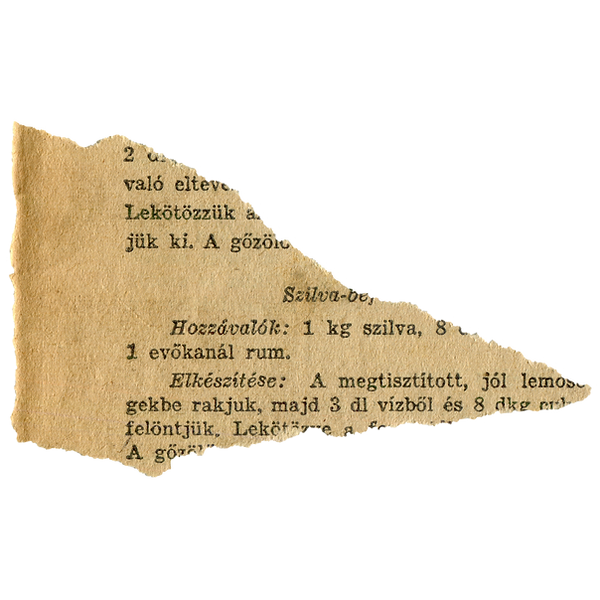 2
való
Lekötözzük
jük ki. A
Szilva-
Hozzávalók: 1 kg szilva, 8
1 evőkanál rum.
Elkészítése: A megtisztított, jól
gekbe rakjuk, majd 3 dl vízből és 8 dkg
felöntjük. Lekötözve a
A